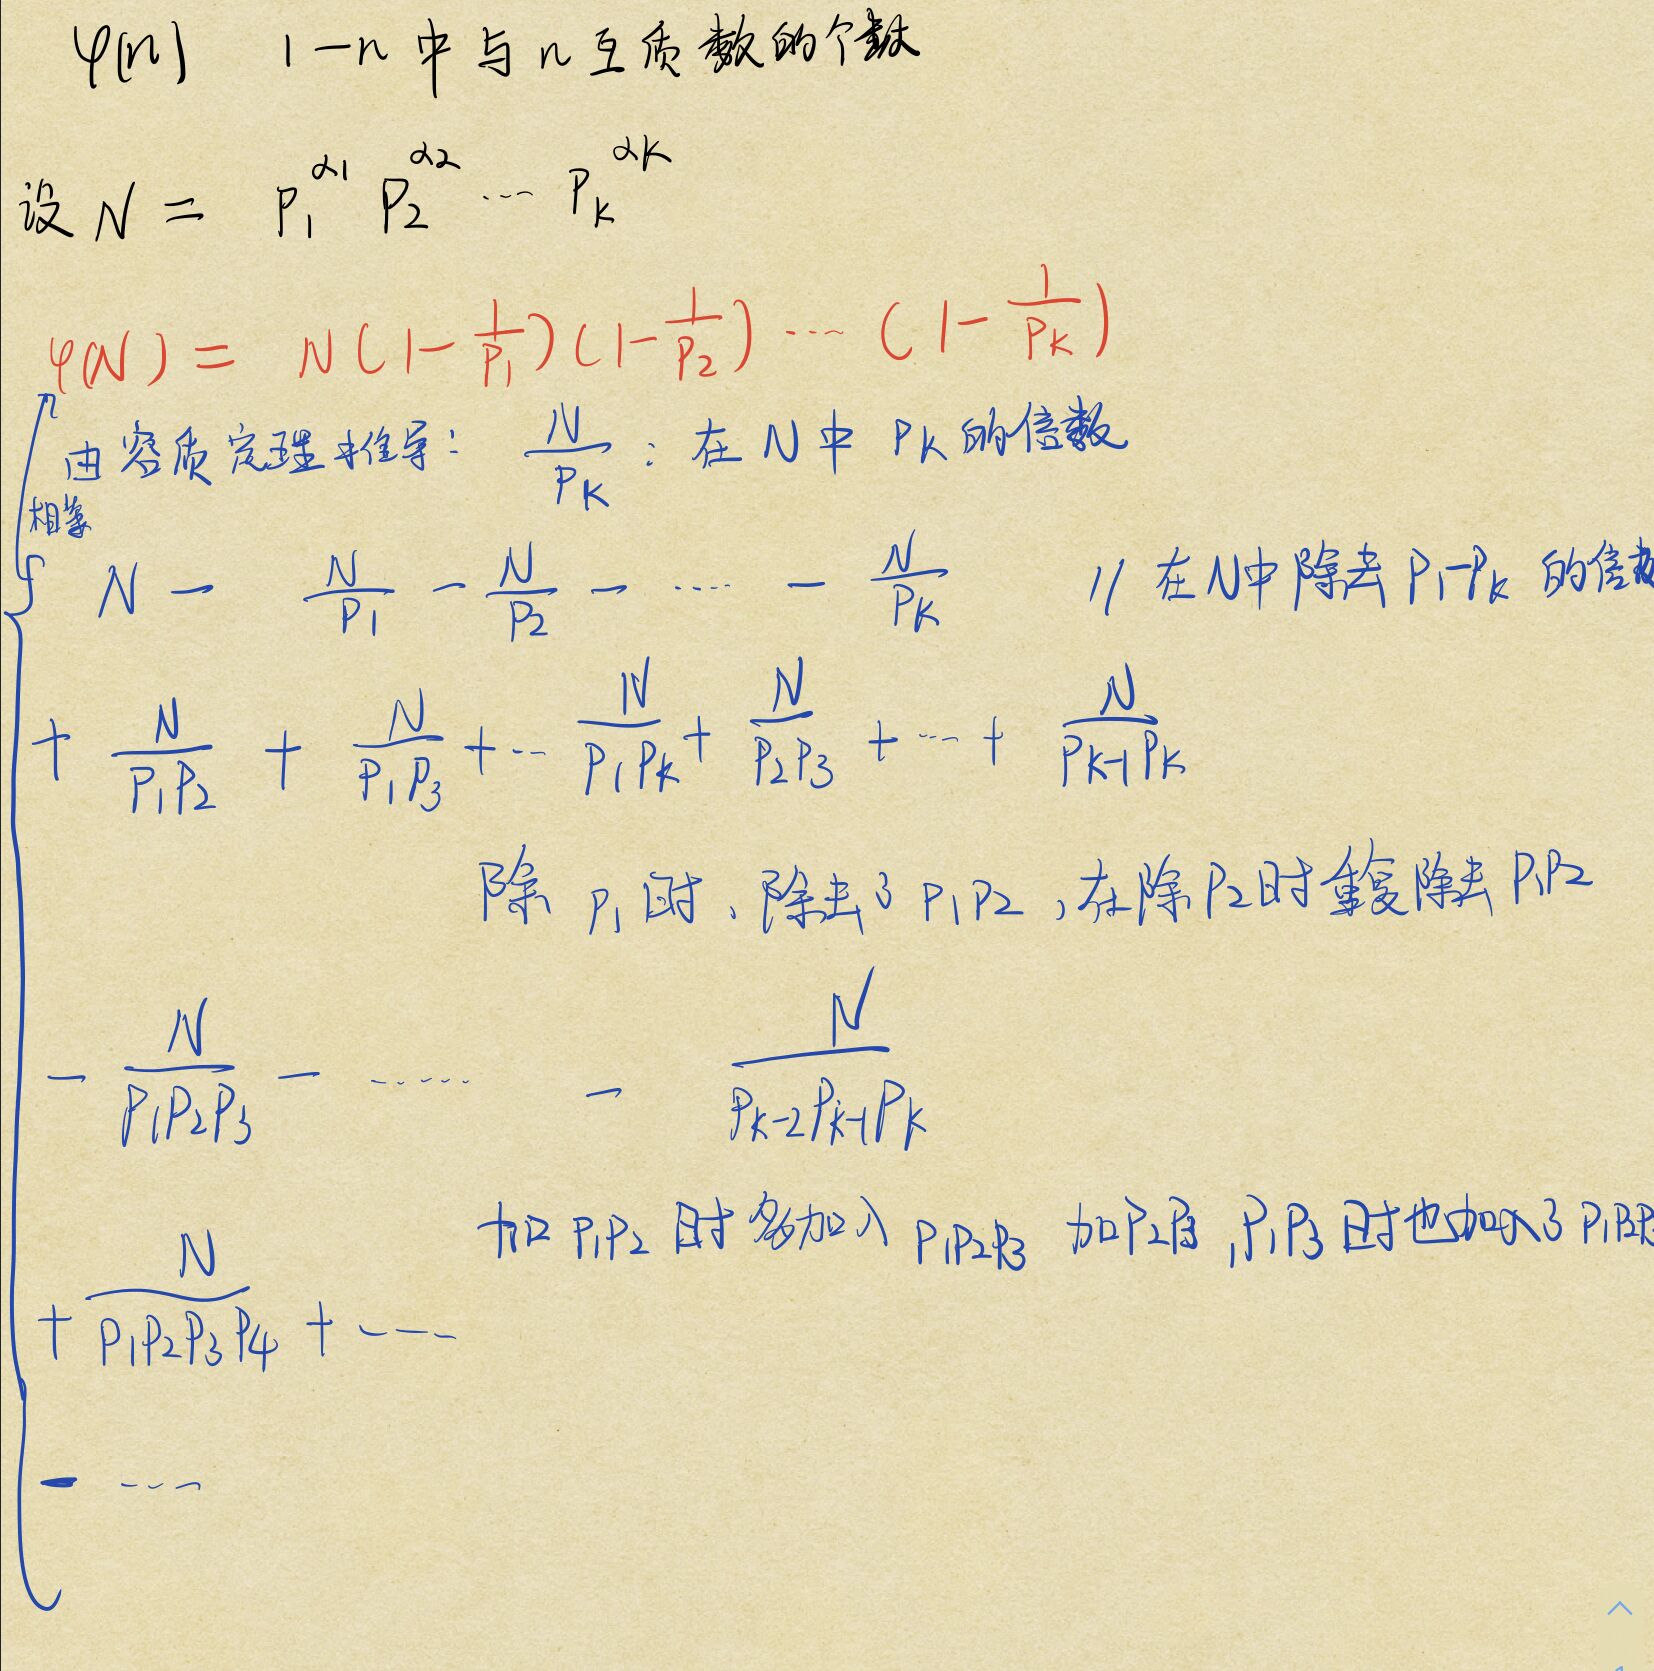 φ(n) 1-n中与n互质数的个数
设 N = P₁^α1 P₂^α2 ... Pₖ^αk
φ(N) = N(1-1/P₁)(1-1/P₂) ... (1-1/Pₖ)
由容质定理推导: N/Pₖ : 在N中 Pₖ的倍数
相等
N - N/P₁ - N/P₂ - .... - N/Pₖ // 在N中除去P₁-Pₖ的倍数
+ N/P₁P₂ + N/P₁P₃ + ... N/P₁Pₖ + N/P₂P₃ + ... + N/Pₖ₋₁Pₖ
除 P₁时、除去了P₁P₂,在除P₂时重复除去P₁P₂
- N/P₁P₂P₃ - ...... - N/Pₖ₋₂Pₖ₋₁Pₖ
加P₁P₂时多加入P₁P₂P₃ 加P₂P₃,P₁P₃时也加入了P₁P₂P₃
+ N/P₁P₂P₃P₄ + ....
- ....